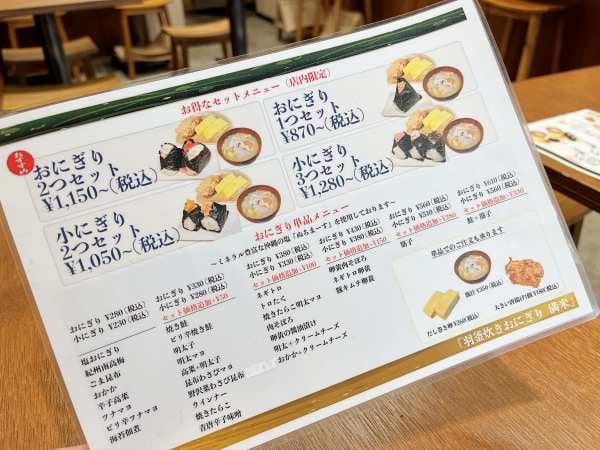 お得なセットメニュー(店内限定)
おすすめ
おにぎり
2つセット
¥1,150~(税込)
おにぎり
1つセット
¥870~(税込)
小にぎり
2つセット
¥1,050~(税込)
小にぎり
3つセット
¥1,280~(税込)
おにぎり単品メニュー
~ミネラル豊富な沖縄の塩『ぬちまーす』を使用しております~
おにぎり ¥280(税込)
小にぎり ¥230(税込)
塩おにぎり
紀州南高梅
ごま昆布
おかか
辛子高菜
ツナマヨ
ピリ辛ツナマヨ
海苔佃煮
おにぎり ¥330(税込)
小にぎり ¥280(税込)
セット価格追加+¥50
焼き鮭
ピリ辛焼き鮭
明太子
明太マヨ
高菜+明太子
昆布わさびマヨ
野沢菜わさび昆布
ウインナー
焼きたらこ
青唐辛子味噌
おにぎり ¥380(税込)
小にぎり ¥330(税込)
セット価格追加+¥100
ネギトロ
トロたく
焼きたらこ明太マヨ
肉そぼろ
卵黄の醤油漬け
明太+クリームチーズ
おかか+クリームチーズ
おにぎり ¥430(税込)
小にぎり ¥380(税込)
セット価格追加+¥150
卵黄肉そぼろ
ネギトロ卵黄
豚キムチ卵黄
おにぎり ¥560(税込)
小にぎり ¥510(税込)
セット価格追加+¥280
筋子
おにぎり ¥610(税込)
小にぎり ¥560(税込)
セット価格追加+¥330
鮭+筋子
単品でのご注文も承ります
豚汁 ¥350(税込)
だし巻き卵 ¥260(税込)
大きい唐揚げ1個 ¥180(税込)
『羽釜炊きおにぎり 満米』